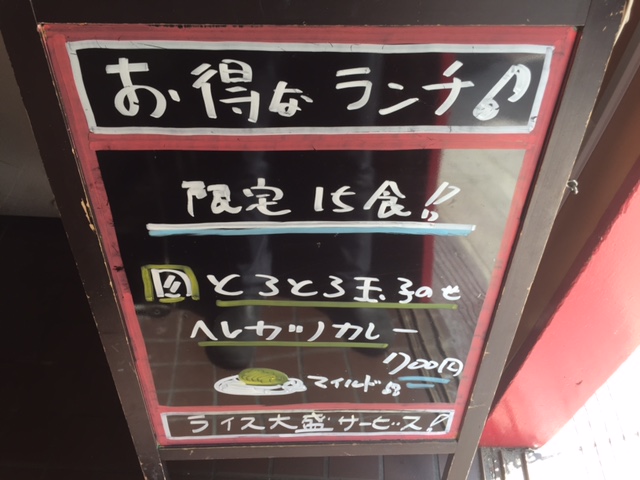 お得なランチ♪
限定15食!!
とろとろ玉子のせ
ヘレカツカレー
700円
マイルド
ライス大盛サービス!